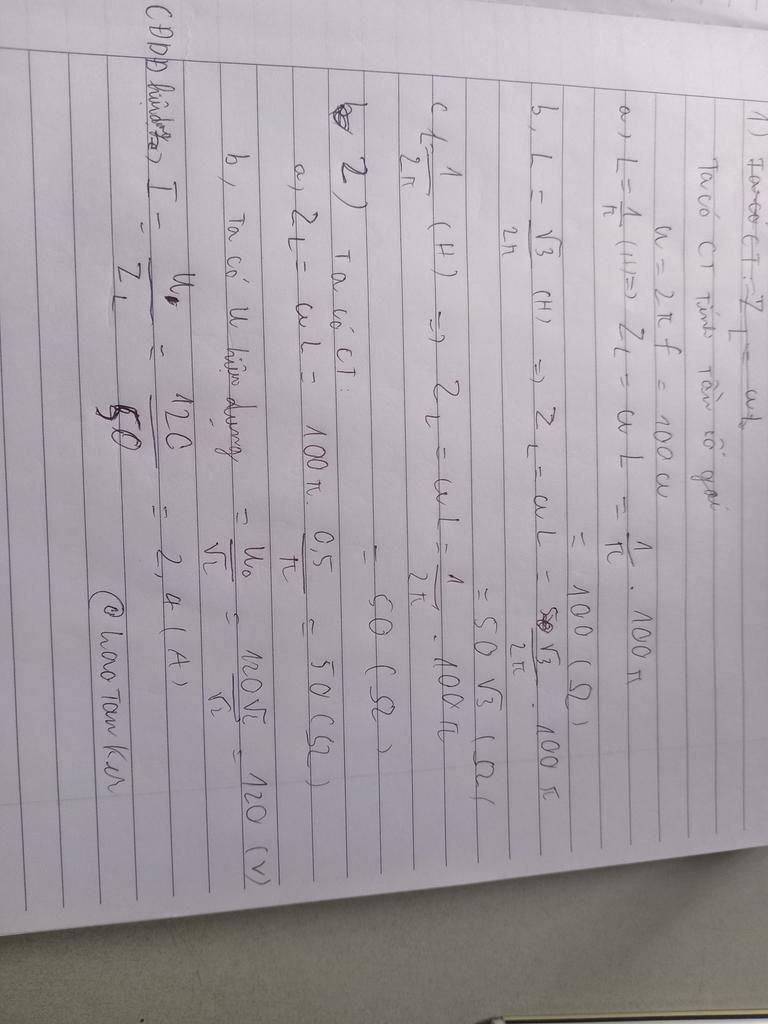 1) Ta có CT: Z_L = ωL
Ta có CT tính tần số góc
ω = 2πf = 100π
a, L = 1/π (H) => Z_L = ωL = 1/π . 100π
= 100 (Ω)
b, L = √3/2π (H) => Z_L = ωL = √3/2π . 100π
= 50√3 (Ω)
c L = 1/2π (H) => Z_L = ωL = 1/2π . 100π
= 50 (Ω)
2) Ta có CT:
a, Z_L = ωL = 100π . 0,5/π = 50 (Ω)
b, Ta có U hiệu dụng = U₀/√2 = 120√2/√2 = 120 (V)
CĐDĐ hiệu dụng I = U/Z_L = 120/50 = 2,4 (A)
@haoTanKur